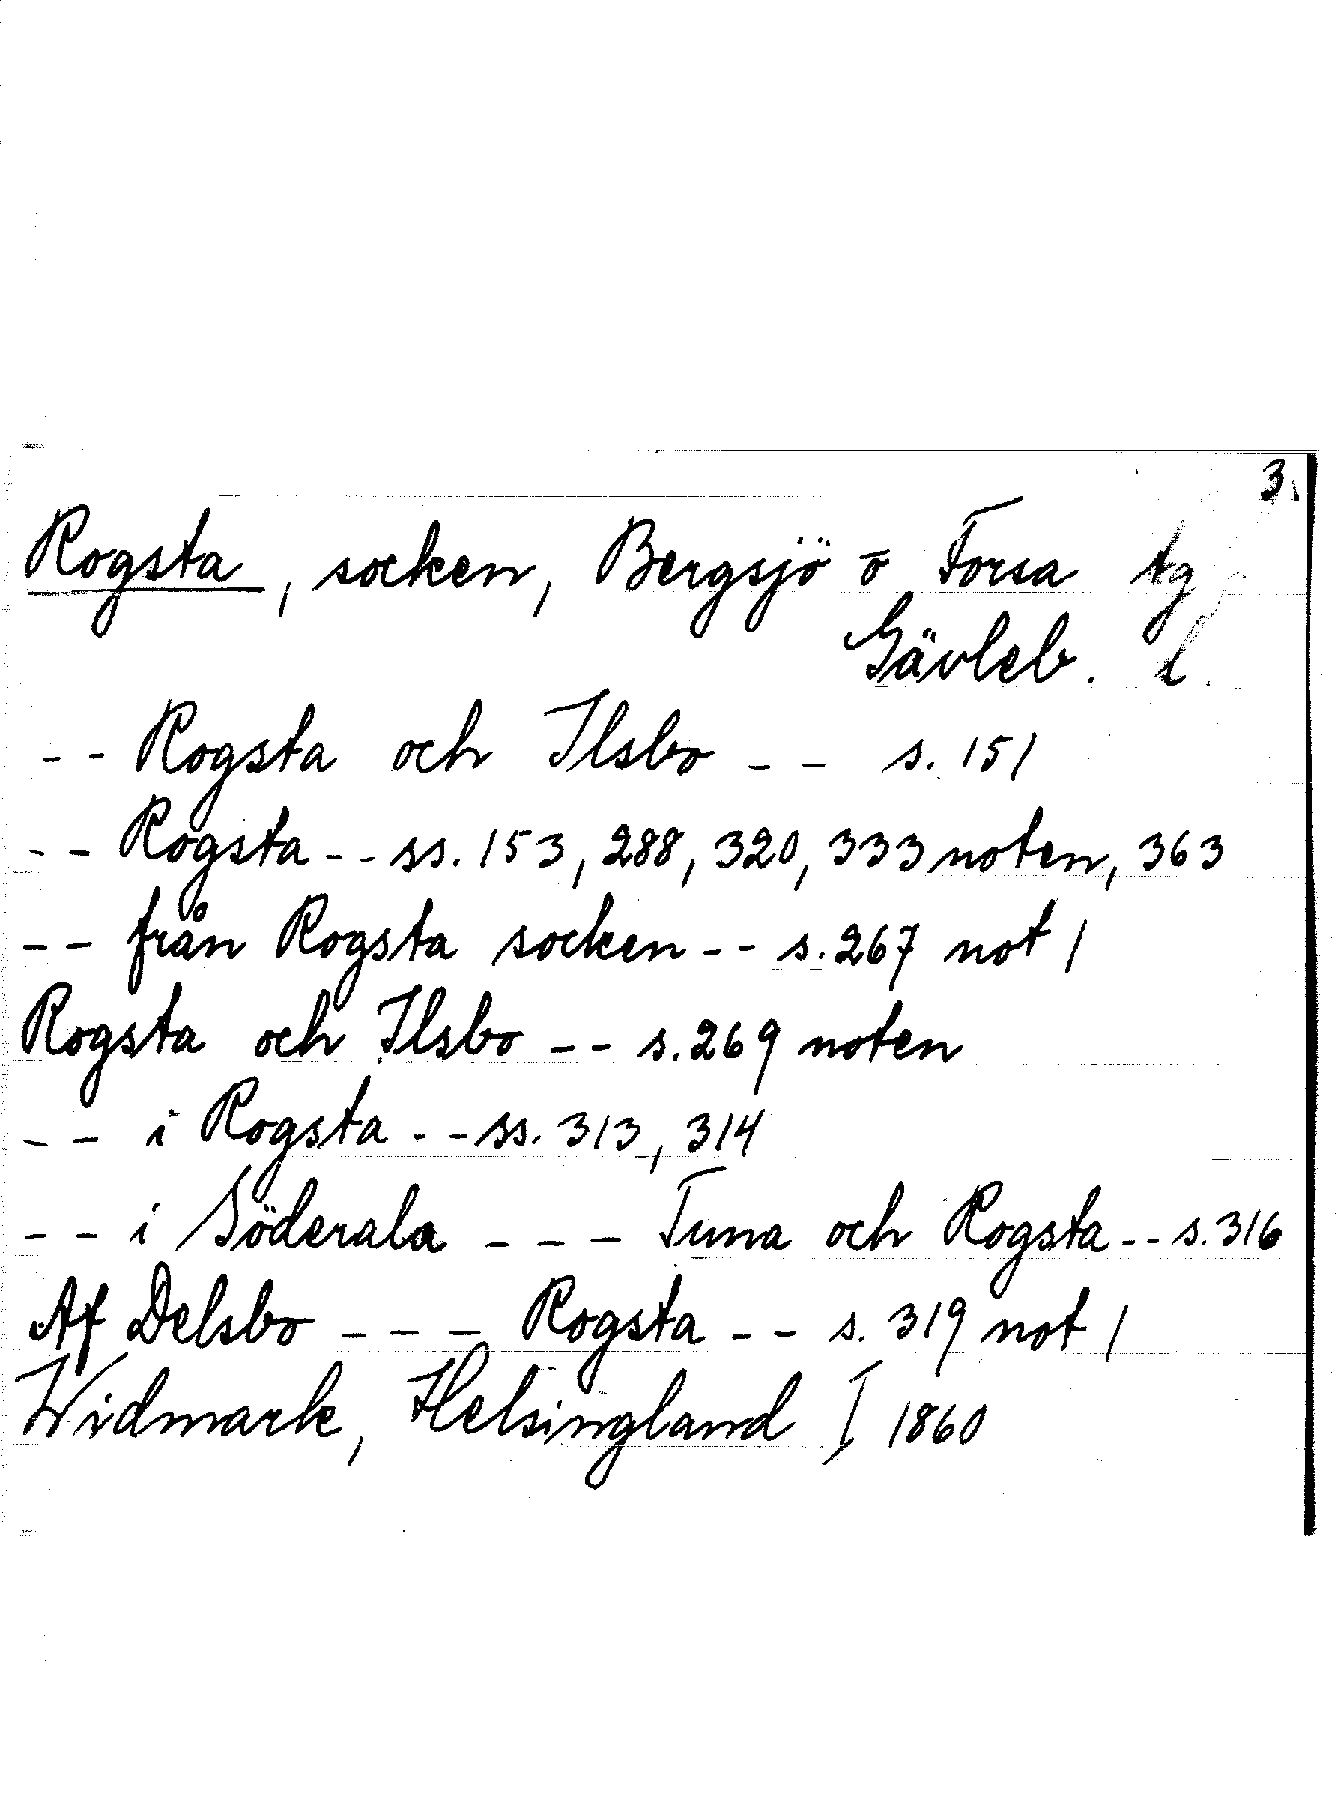 3.
Rogsta, socken, Bergsjö o Forsa tg
Gävleb. l.
-- Rogsta och Ilsbo -- s. 151
-- Rogsta -- ss. 153, 288, 320, 333 noten, 363
-- från Rogsta socken -- s. 267 not 1
Rogsta och Ilsbo -- s. 269 noten
-- i Rogsta -- ss. 313, 314
-- i Söderala --- Tuna och Rogsta -- s. 316
Af Delsbo --- Rogsta -- s. 319 not 1
Widmark, Helsingland I 1860